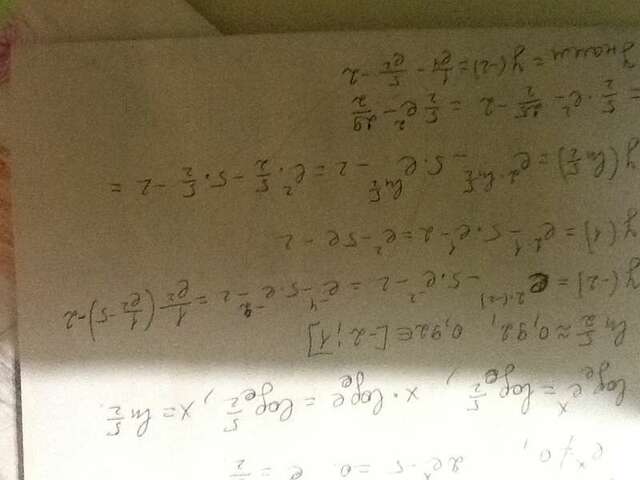 e^x ≠ 0, 2e^x - 5 = 0 e = 5/2
log_e e^x = log_e 5/2, x · log_e e = log_e 5/2, x = ln 5/2.
ln 5/2 ≈ 0,92, 0,92 ∈ [-2; 1]
y(-2) = e^{2·(-2)} - 5·e^{-2} - 2 = e^{-4} - 5·e^{-2} - 2 = 1/e^2 (1/e^2 - 5) - 2
y(1) = e^{2·1} - 5·e^1 - 2 = e^2 - 5e - 2
y(ln 5/2) = e^{2·ln 5/2} - 5·e^{ln 5/2} - 2 = e^2 · 5/2 - 5 · 5/2 - 2 =
= 5/2 · e^2 - 25/2 - 2 = 5/2 e^2 - 29/2
y наим = y(-2) = 1/e^4 - 5/e^2 - 2